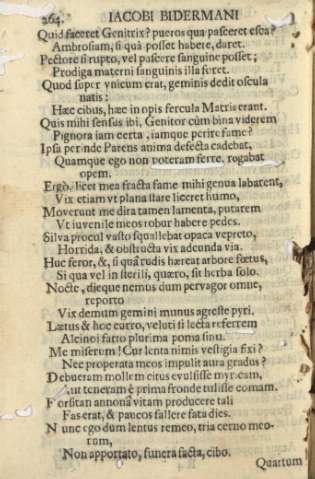 264. IACOBI BIDERMANI
Quid faceret Genitrix? pueros qua pasceret esca?
Ambrosiam, si qua posset habere, daret.
Pectore si rupto, vel pascere sanguine posset;
Prodiga materni sanguinis illa foret.
Quod super vnicum erat, geminis dedit oscula
natis:
Hæc cibus, hæc in opis fercula Matris erant.
Quis mihi sensus ibi, Genitor cùm bina viderem
Pignora iam certa, iamque perire fame?
Ipsa perinde Parens anima defecta cadebat,
Quamque ego non poteram ferre, rogabat
opem.
Ergò, licet mea fracta fame mihi genua labarent,
Vix etiam vt plana stare liceret humo,
Moverunt me dira tamen lamenta, putarem
Vt iuvenile meos robur habere pedes.
Silva procul vasto squallebat opaca vepreto,
Horrida, & obstructa vix adeunda via.
Huc feror, &, si quâ rudis hæreat arbore fœtus,
Si qua vel in sterili, quæro, sit herba solo.
Nocte, dieque nemus dum pervagor omne,
reporto
Vix demum gemini munus agreste pyri.
Lætus & hoc curro, veluti si lecta referrem
Alcinoi farto plurima poma sinu.
Me miserum! Cur lenta nimis vestigia fixi?
Nec properata meos impulit aura gradus?
Debueram mollem citus evulsisse myricam,
Aut teneram è prima fronde tulisse comam.
Forsitan annonâ vitam producere tali
Fas erat, & paucos fallere fata dies.
Nunc ego dum lentus remeo, tria cerno meo-
rum,
Non apportato, funera facta, cibo.
Quartum